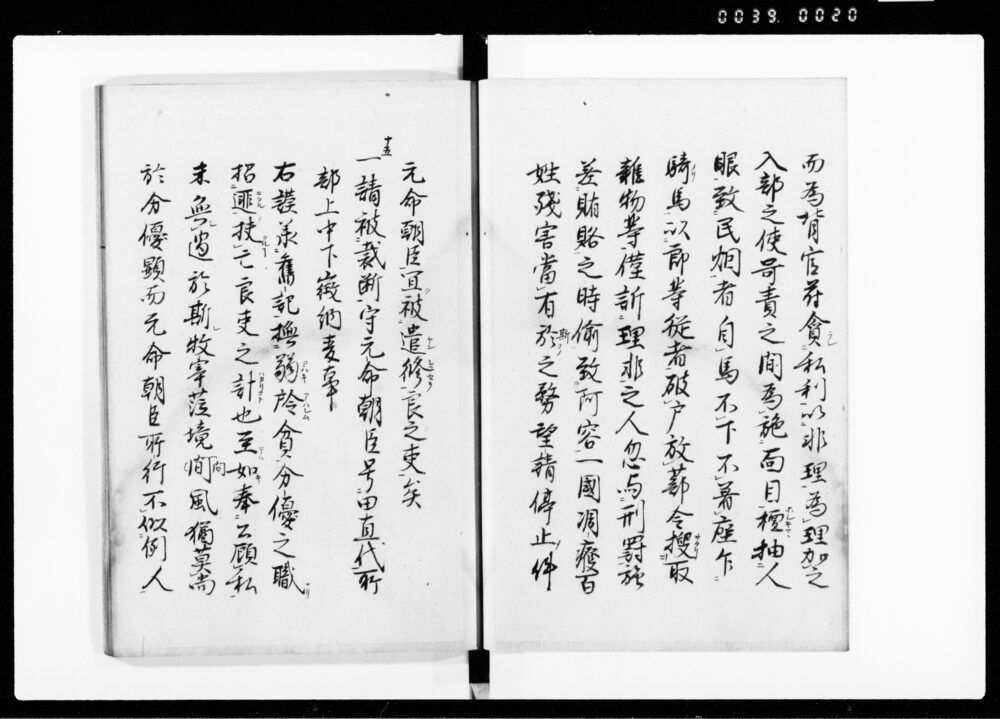 0039. 0020
而為背官符貪私利以非理為理加之
入部之使呵責之間為施面目種抽人
眼致民烟者自馬不下不著座乍
騎馬以郎等従者破戸放蔀令捜取
雑物等僅訴理非之人忽与刑罰施
差賄賂之時偷致阿容一國凋癈百
姓残害當有於之務望請停止件
元命朝臣宜被遣修良之吏矣
十五
一請被裁断守元命朝臣号田直代所
部上中下徴納麦事
右謹案舊記撫弱矜貧分優之職
招匪扶亡良吏之計也至如奉公顧私
未無過於斯牧宰莅境向風猶莫尚
於分優顕而元命朝臣所行不似例人